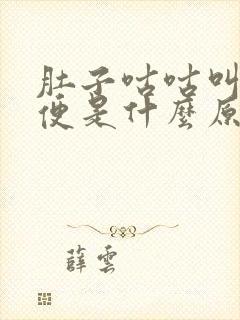 肚子咕咕叫
便是什麼原
薛雲